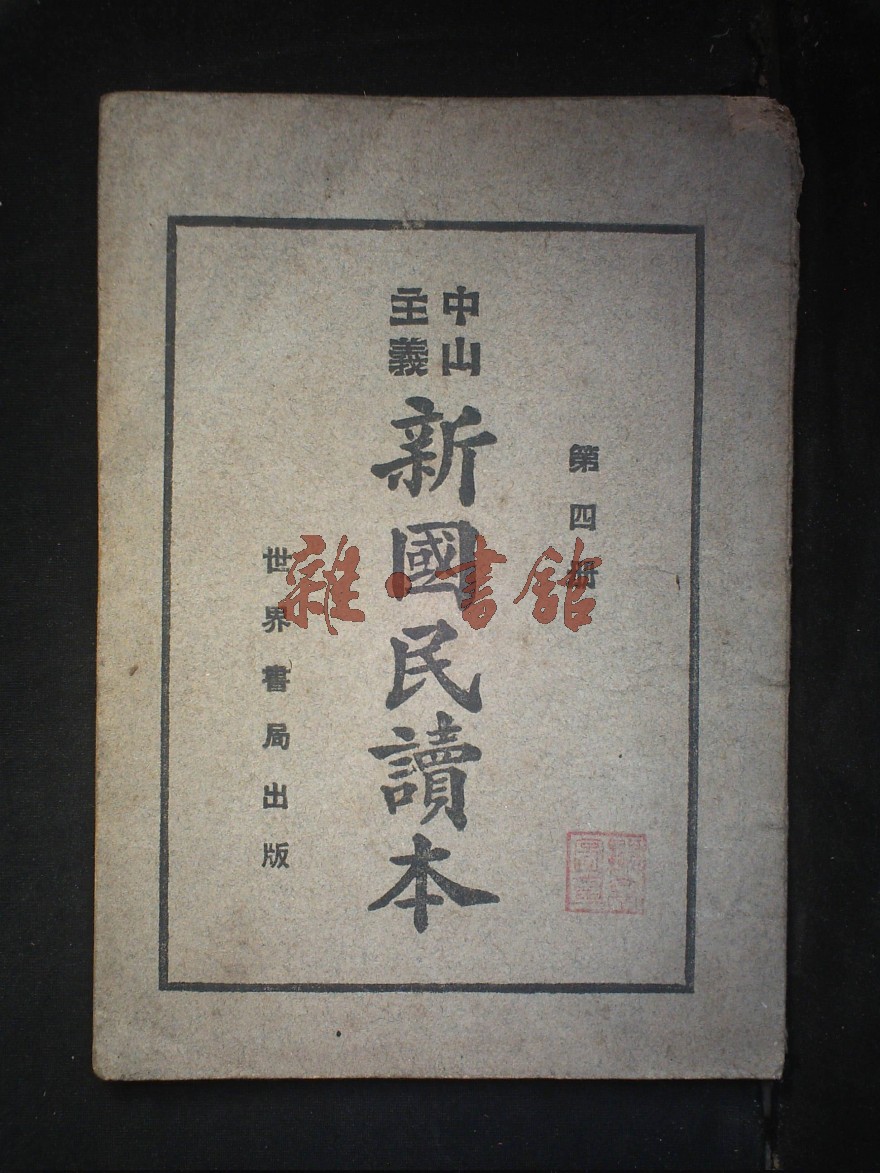 第四册
中山
主義
新國民讀本
世界書局出版
雜·書館